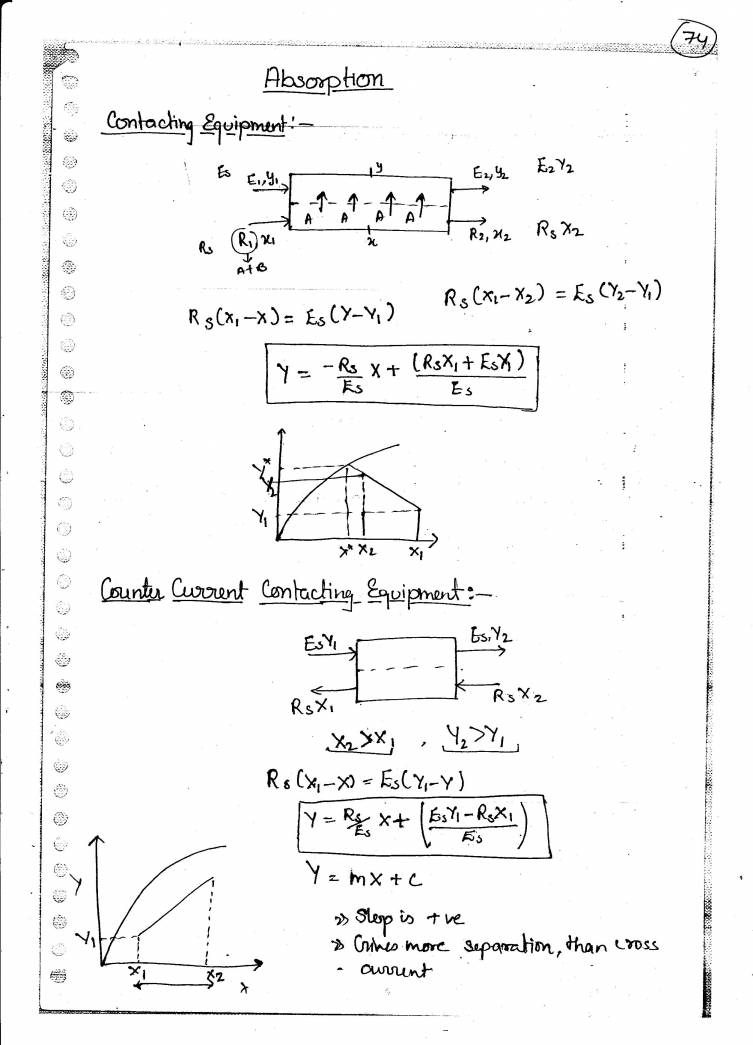 74
Absorption
Contacting Equipment:-
Es E1, y1 y E2, y2 E2 Y2
A A A A
Rs R1, x1 x R2, x2 Rs X2
A+B
Rs(X1-X2) = Es(Y2-Y1)
Rs(X1-X) = Es(Y-Y1)
Y = -Rs/Es X + (RsX1 + EsY1)/Es
Y*
Y2
Y1
X* X2 X1
Counter Current Contacting Equipment:-
EsY1 Es, Y2
RsX1 Rs X2
X2 > X1 , Y2 > Y1
Rs(X1-X) = Es(Y1-Y)
Y = Rs/Es X + (EsY1-RsX1/Es)
Y = mX + C
Y
Y1
X1 X2 X
» Slop is +ve
» Gives more separation, than cross
- current